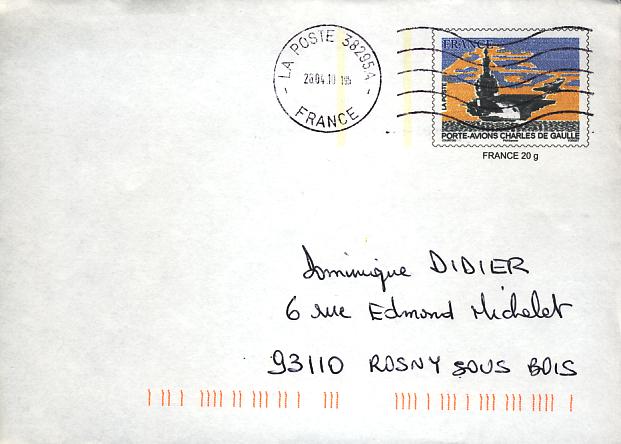 LA POSTE 38295A
28.04.10 19h
FRANCE
FRANCE
LA POSTE
PORTE-AVIONS CHARLES DE GAULLE
FRANCE 20 g
Dominique DIDIER
6 rue Edmond Michelet
93110 ROSNY SOUS BOIS